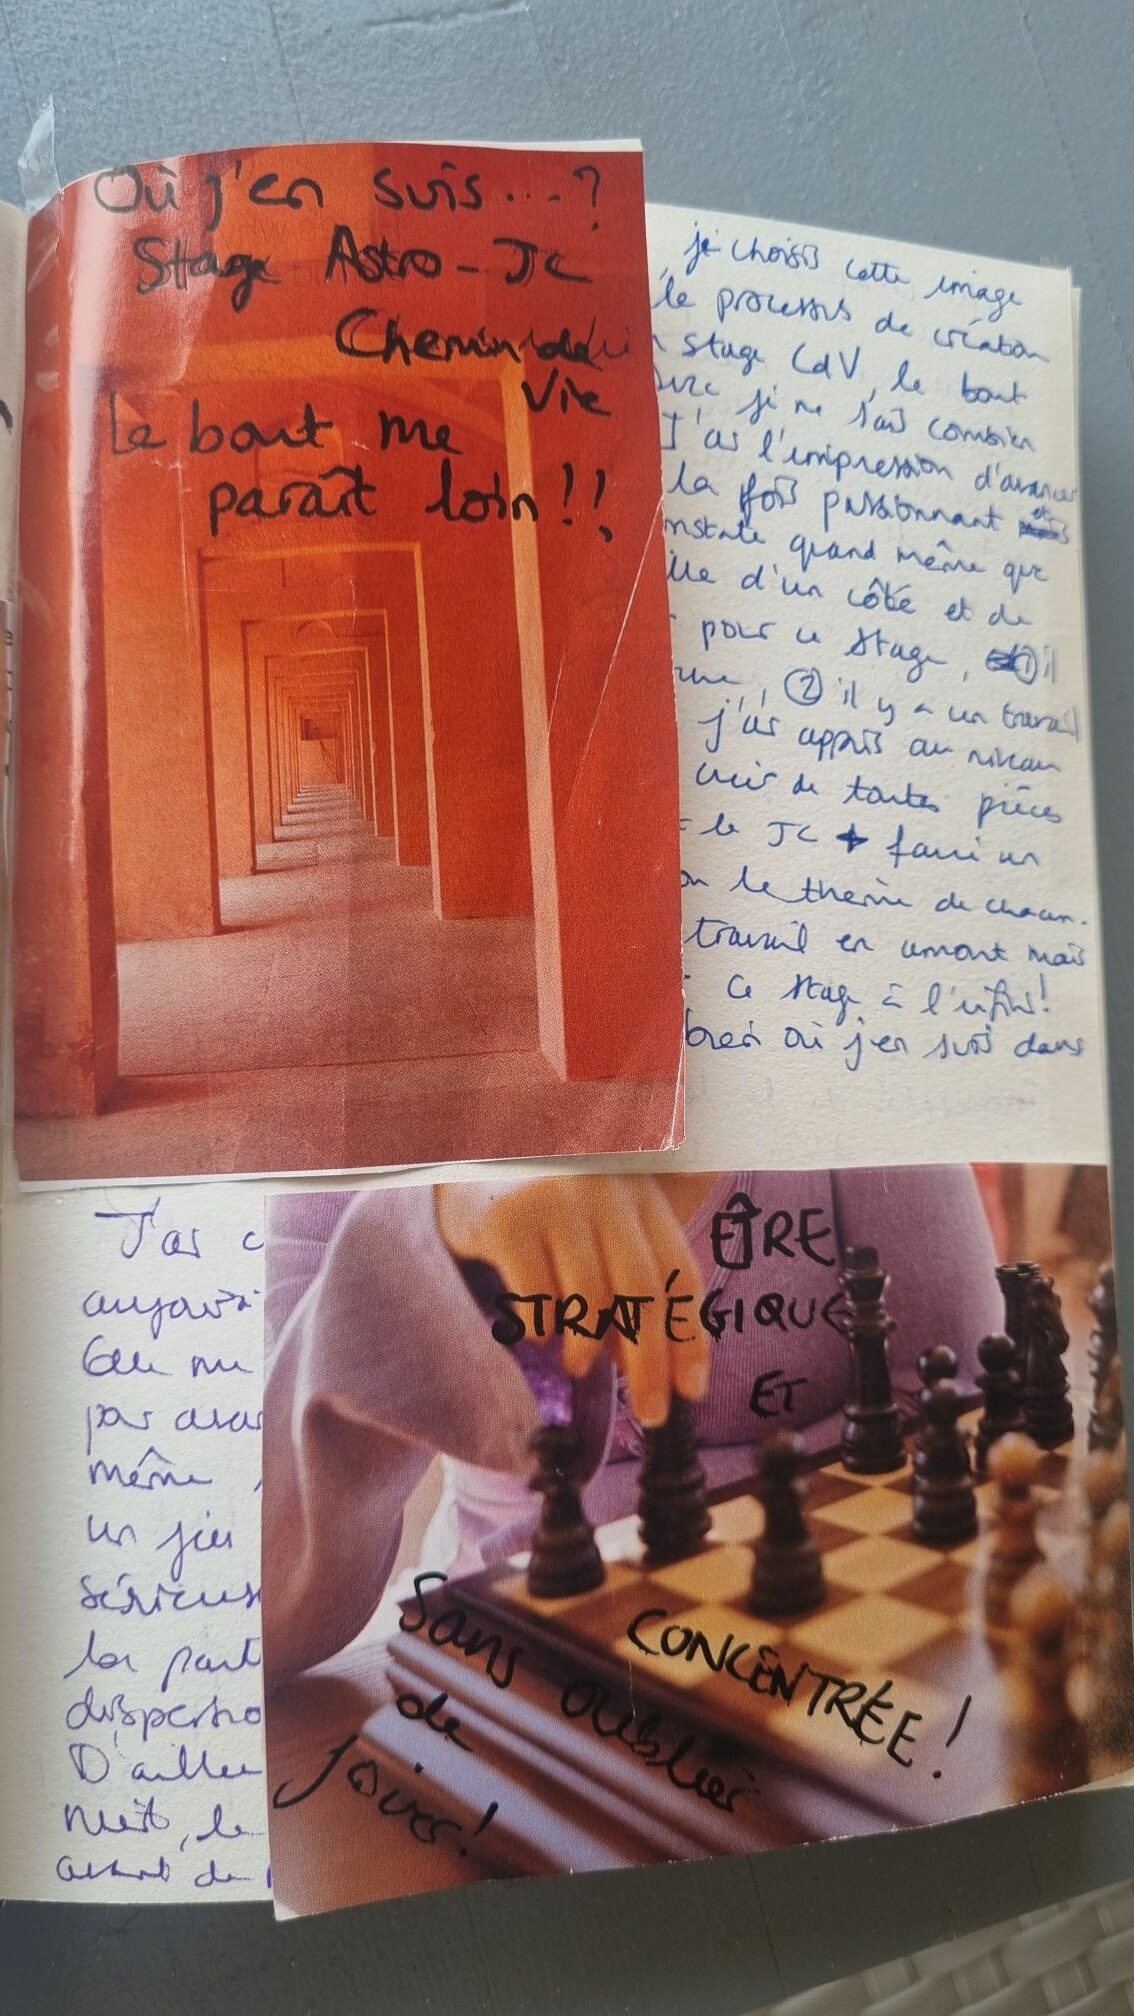 Où j'en suis...?
Stage Astro-JC
Chemin de
Vie
Le bout me
paraît loin!!
je choisis cette image
le processus de création
stage CdV, le bout
je ne sais combien
J'ai l'impression d'avancer
la fois passionnant et
quand même que
d'un côté et de
pour ce stage, ① il
② il y a un travail
j'ai appris au niveau
de toutes pièces
le JC + faire un
le thème de chacun.
travail en amont mais
ce stage à l'infini!
où j'en suis dans
J'ai c
aujour
Elle me
par avan
même,
un jeu
sérieus
la part
dispersio
D'aille
nuit, le
avant de
ÊTRE
STRATÉGIQUE
ET
CONCENTRÉE!
Sans oublier
de
jouer!